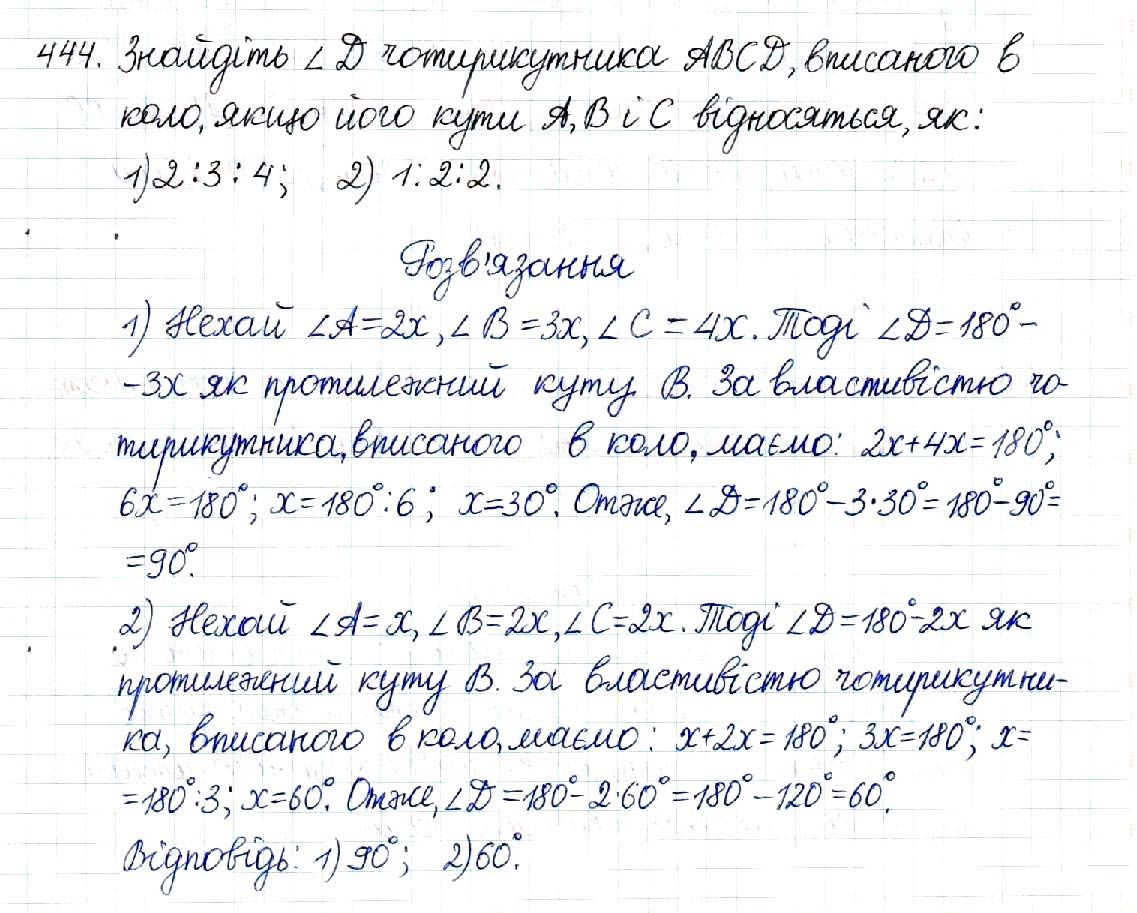 444. Знайдіть ∠D чотирикутника ABCD, вписаного в
коло, якщо його кути A, B і C відносяться, як:
1) 2:3:4; 2) 1:2:2.
Розв'язання
1) Нехай ∠A=2x, ∠B=3x, ∠C=4x. Тоді ∠D=180°-
-3x як протилежний куту B. За властивістю чо-
тирикутника, вписаного в коло, маємо: 2x+4x=180°;
6x=180°; x=180°:6; x=30°. Отже, ∠D=180°-3·30°=180°-90°=
=90°.
2) Нехай ∠A=x, ∠B=2x, ∠C=2x. Тоді ∠D=180°-2x як
протилежний куту B. За властивістю чотирикутни-
ка, вписаного в коло, маємо: x+2x=180°; 3x=180°; x=
=180°:3; x=60°. Отже, ∠D=180°-2·60°=180°-120°=60°.
Відповідь: 1) 90°; 2) 60°.